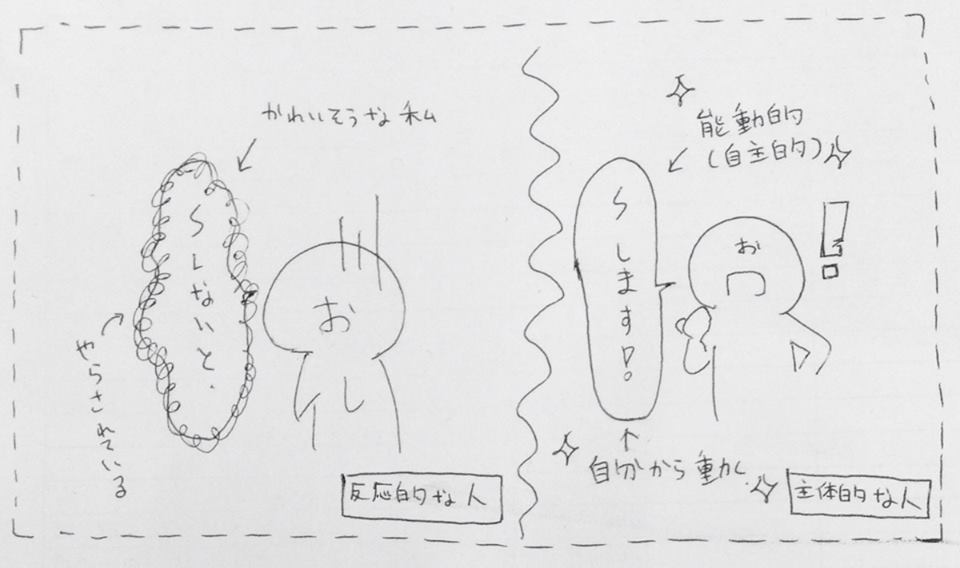 かわいそうな私
〜しないと.
お
やらされている
反応的な人
能動的
(自主的)
〜します!
お
自分から動く.
主体的な人